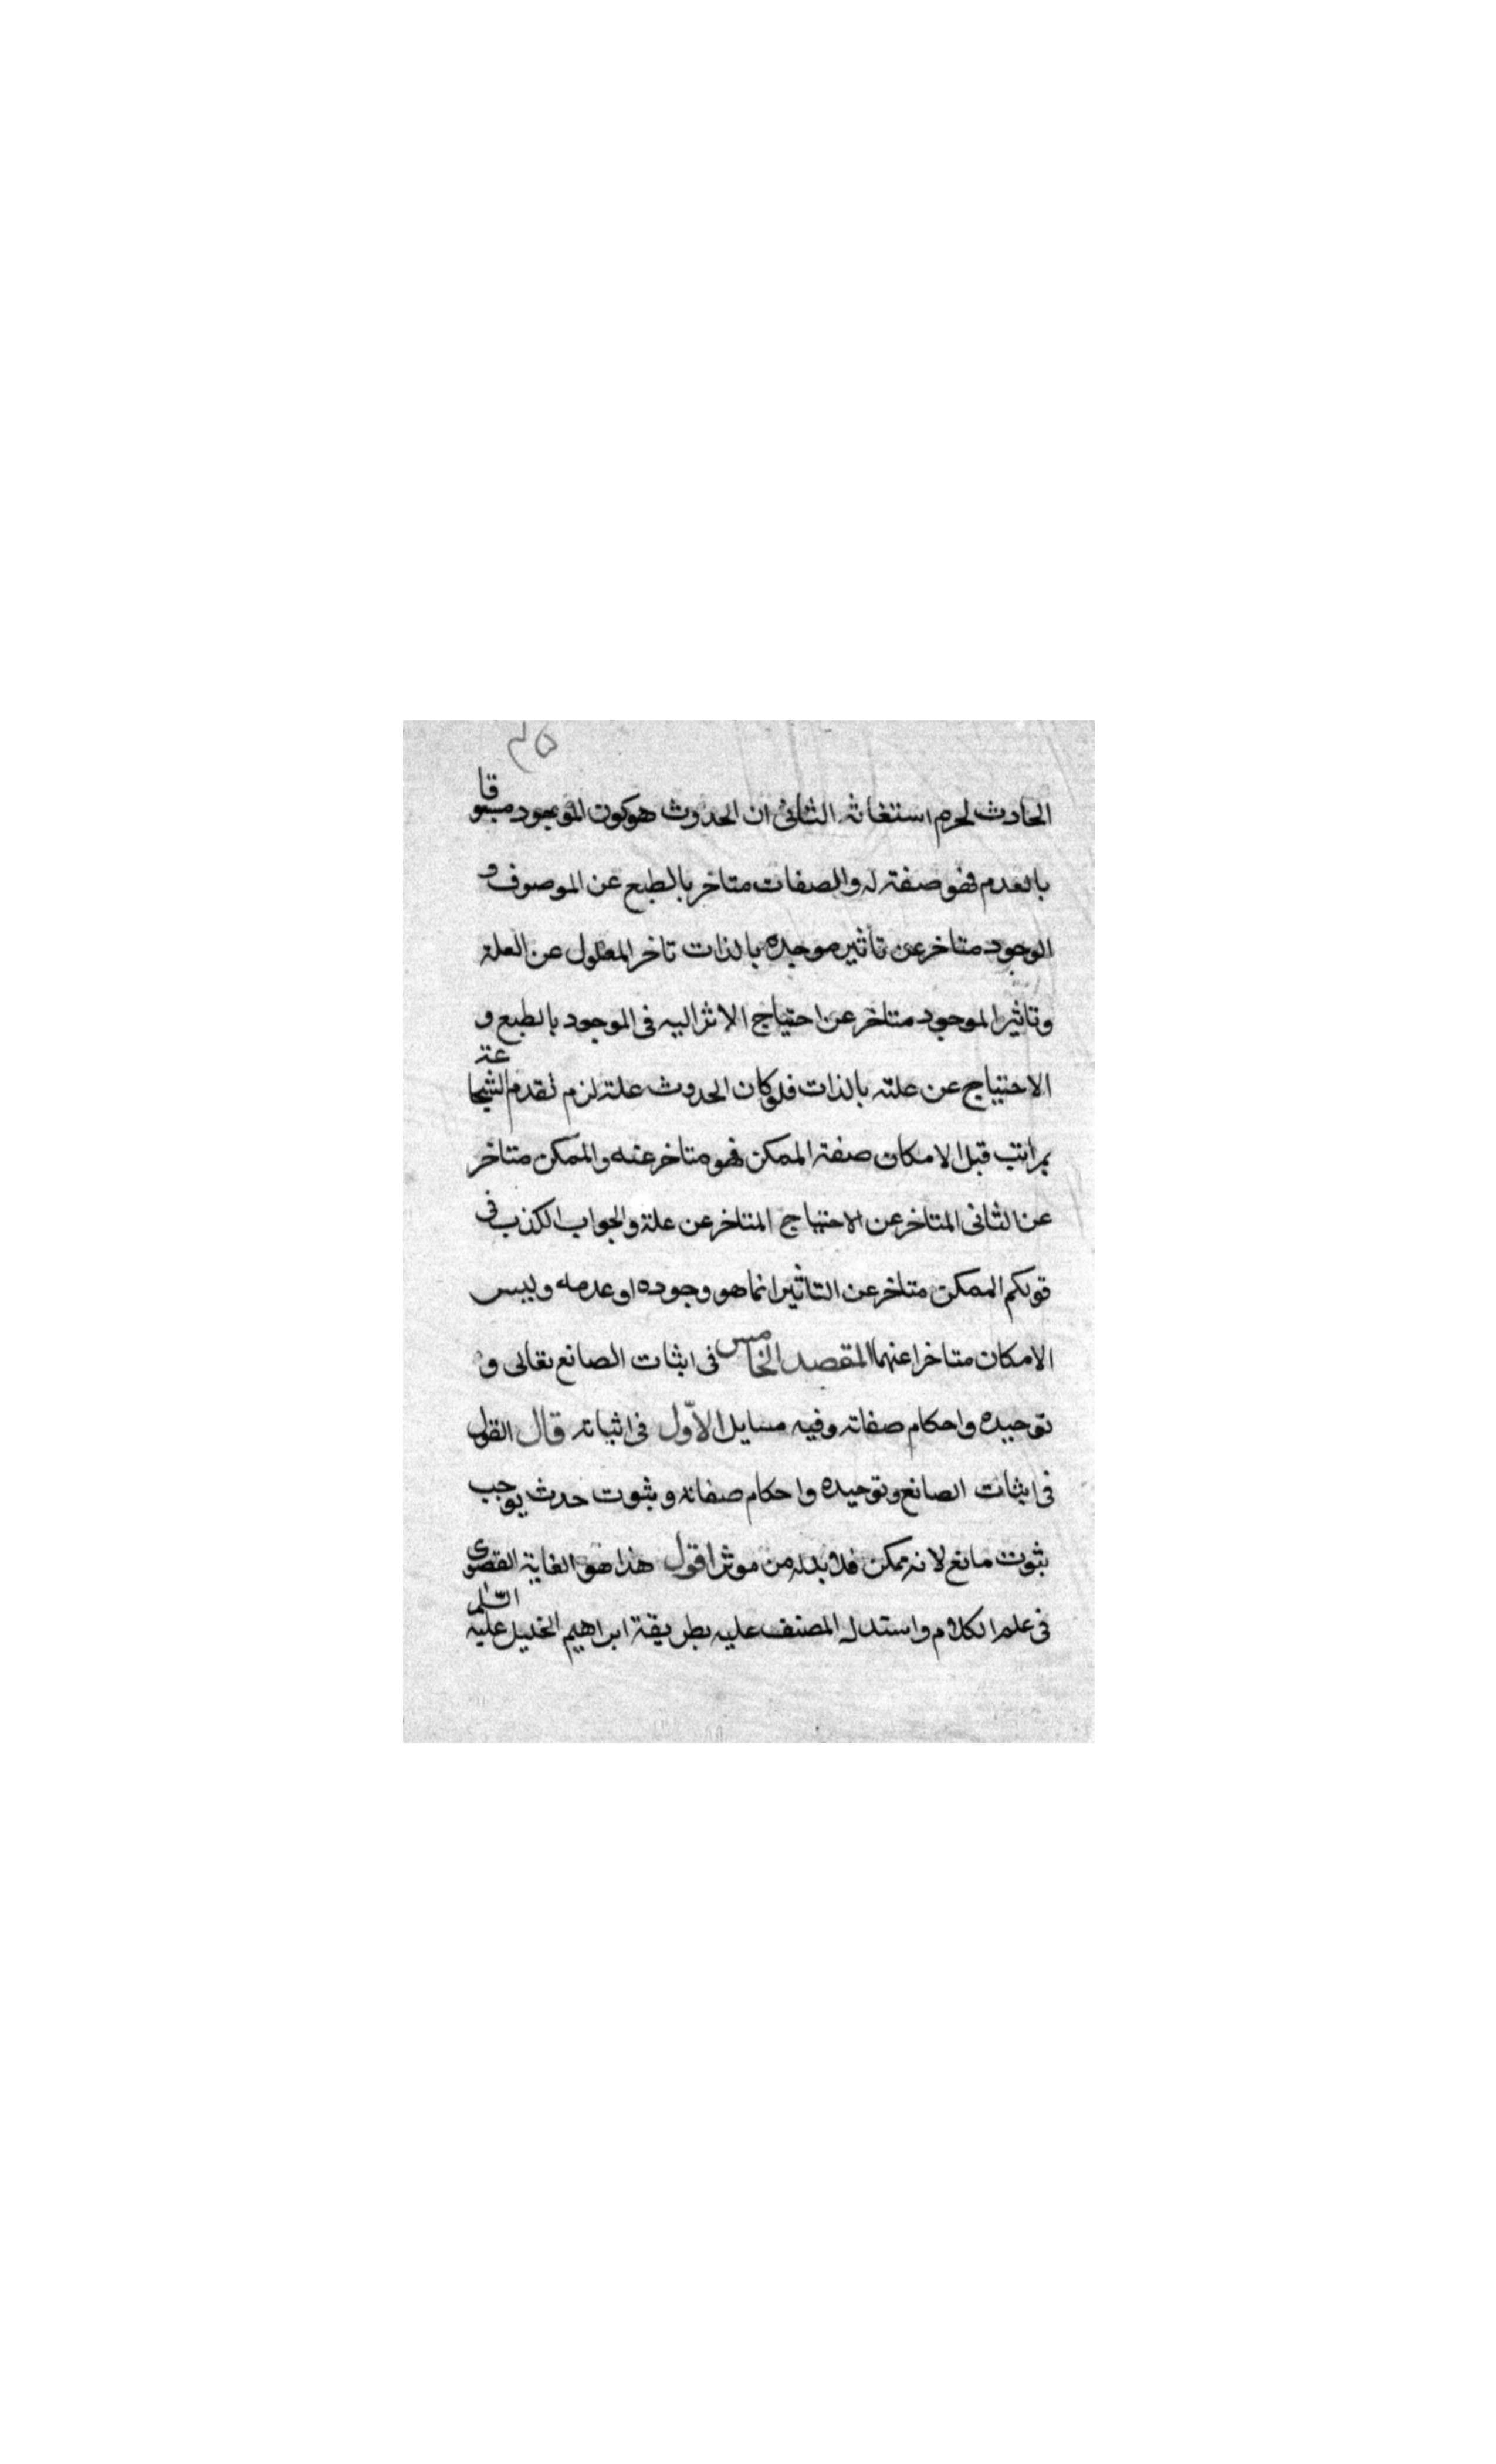 الحادث لحرم استغاثه الثانى ان الحدوث هو كون الموجود مسبوقا
بالعدم فهو صفة له والصفات متاخر بالطبع عن الموصوف و
الوجود متاخر عن تأثير موجده بالذات تاخر المعلول عن العلة
وتاثير الموجود متاخر عن احتياج الاثر اليه فى الموجود بالطبع و
الاحتياج عن علته بالذات فلو كان الحدوث علة لزم تقدم
بمراتب قبل الامكان صفة الممكن فهو متاخر عنه والممكن متاخر
عن الثانى المتاخر عن الاحتياج المتاخر عن علة والجواب الكذب فى
قولكم الممكن متاخر عن التاثير انما هو وجوده او عدمه وليس
الامكان متاخرا عنهما المقصد الخامس فى اثبات الصانع تعالى و
توحيده واحكام صفاته وفيه مسايل الاوّل فى اثباته قال القول
فى اثبات الصانع وتوحيده واحكام صفاته وثبوت حدث يوجب
ثبوت مانع لانه ممكن فلا بد له من موثر اقول هذا هو الغاية القصوى
فى علم الكلام واستدل المصنف عليه بطريقة ابراهيم الخليل عليه السّلم